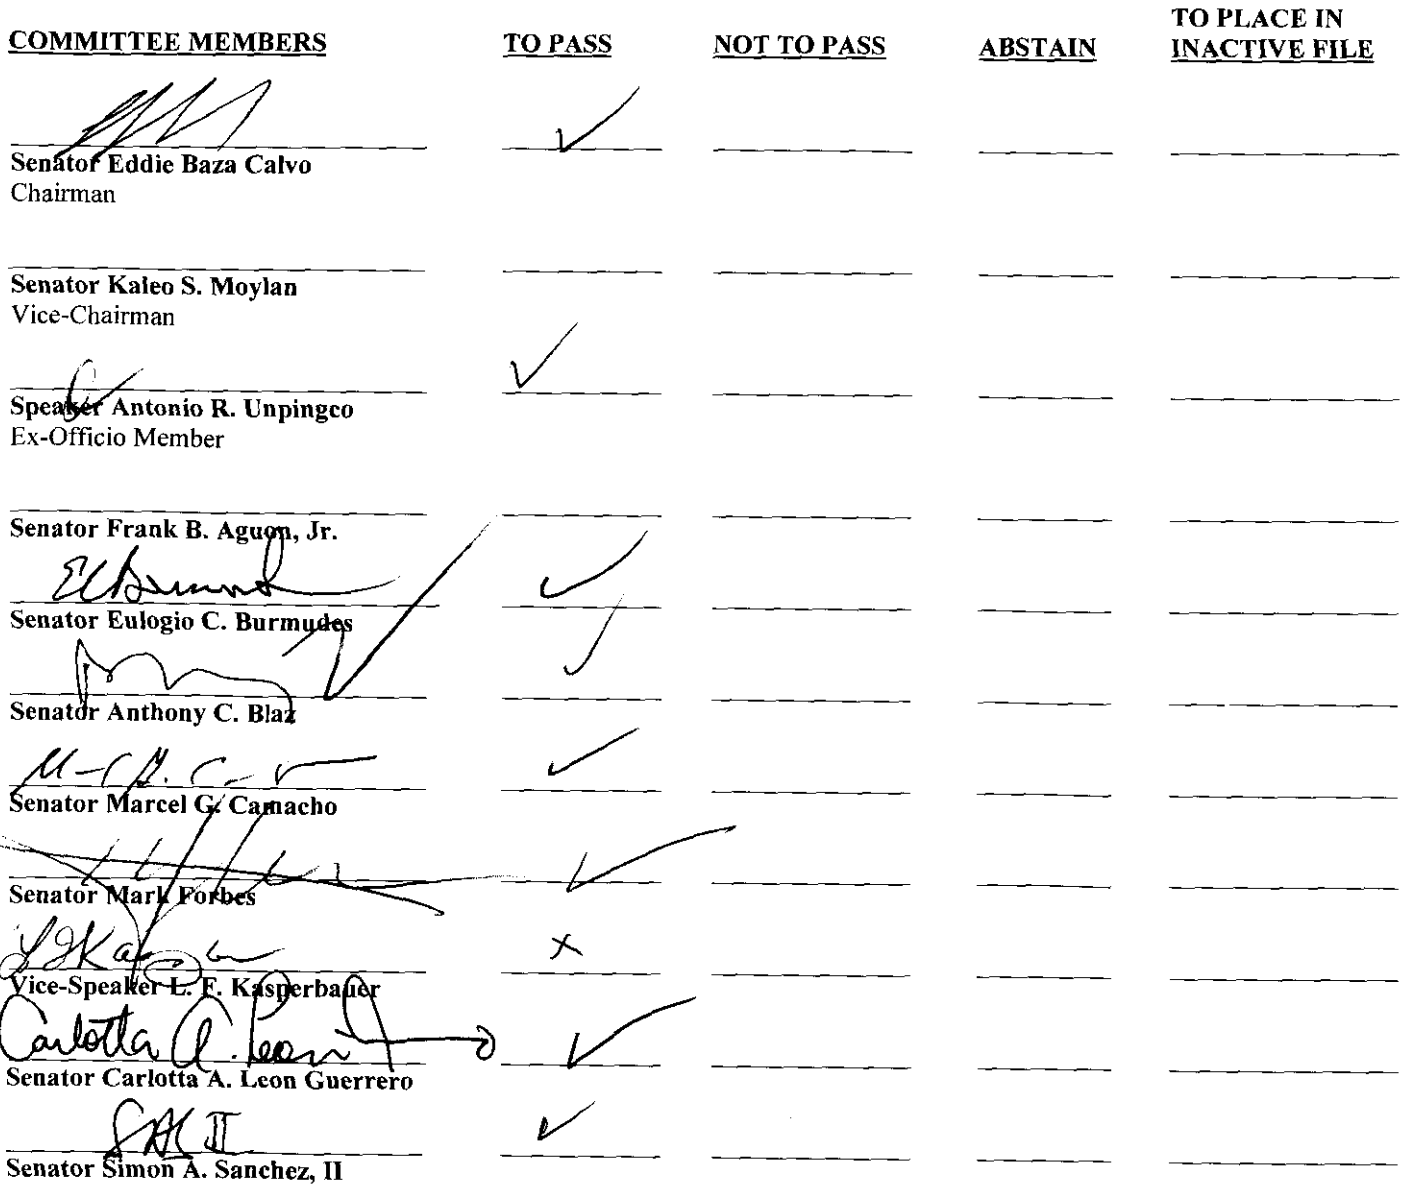 TO PLACE IN
COMMITTEE MEMBERS TO PASS NOT TO PASS ABSTAIN INACTIVE FILE
Senator Eddie Baza Calvo
Chairman
Senator Kaleo S. Moylan
Vice-Chairman
Speaker Antonio R. Unpingco
Ex-Officio Member
Senator Frank B. Aguon, Jr.
Senator Eulogio C. Burmudes
Senator Anthony C. Blaz
Senator Marcel G. Camacho
Senator Mark Forbes
x
Vice-Speaker L. F. Kasperbauer
Carlotta A. Leon
Senator Carlotta A. Leon Guerrero
II
Senator Simon A. Sanchez, II